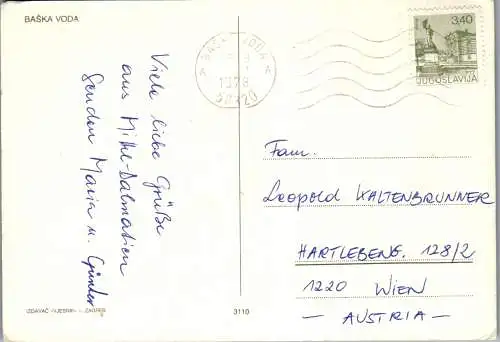 BAŠKA VODA
3,40
JUGOSLAVIJA
1978
58320
Viele liebe Grüße
aus Mittel-Dalmatien
Senden Maria u. Günter
Fam.
Leopold KALTENBRUNNER
HARTLEBENG. 128/2
1220 WIEN
— AUSTRIA —
IZDAVAČ »VJESNIK« — ZAGREB
3110